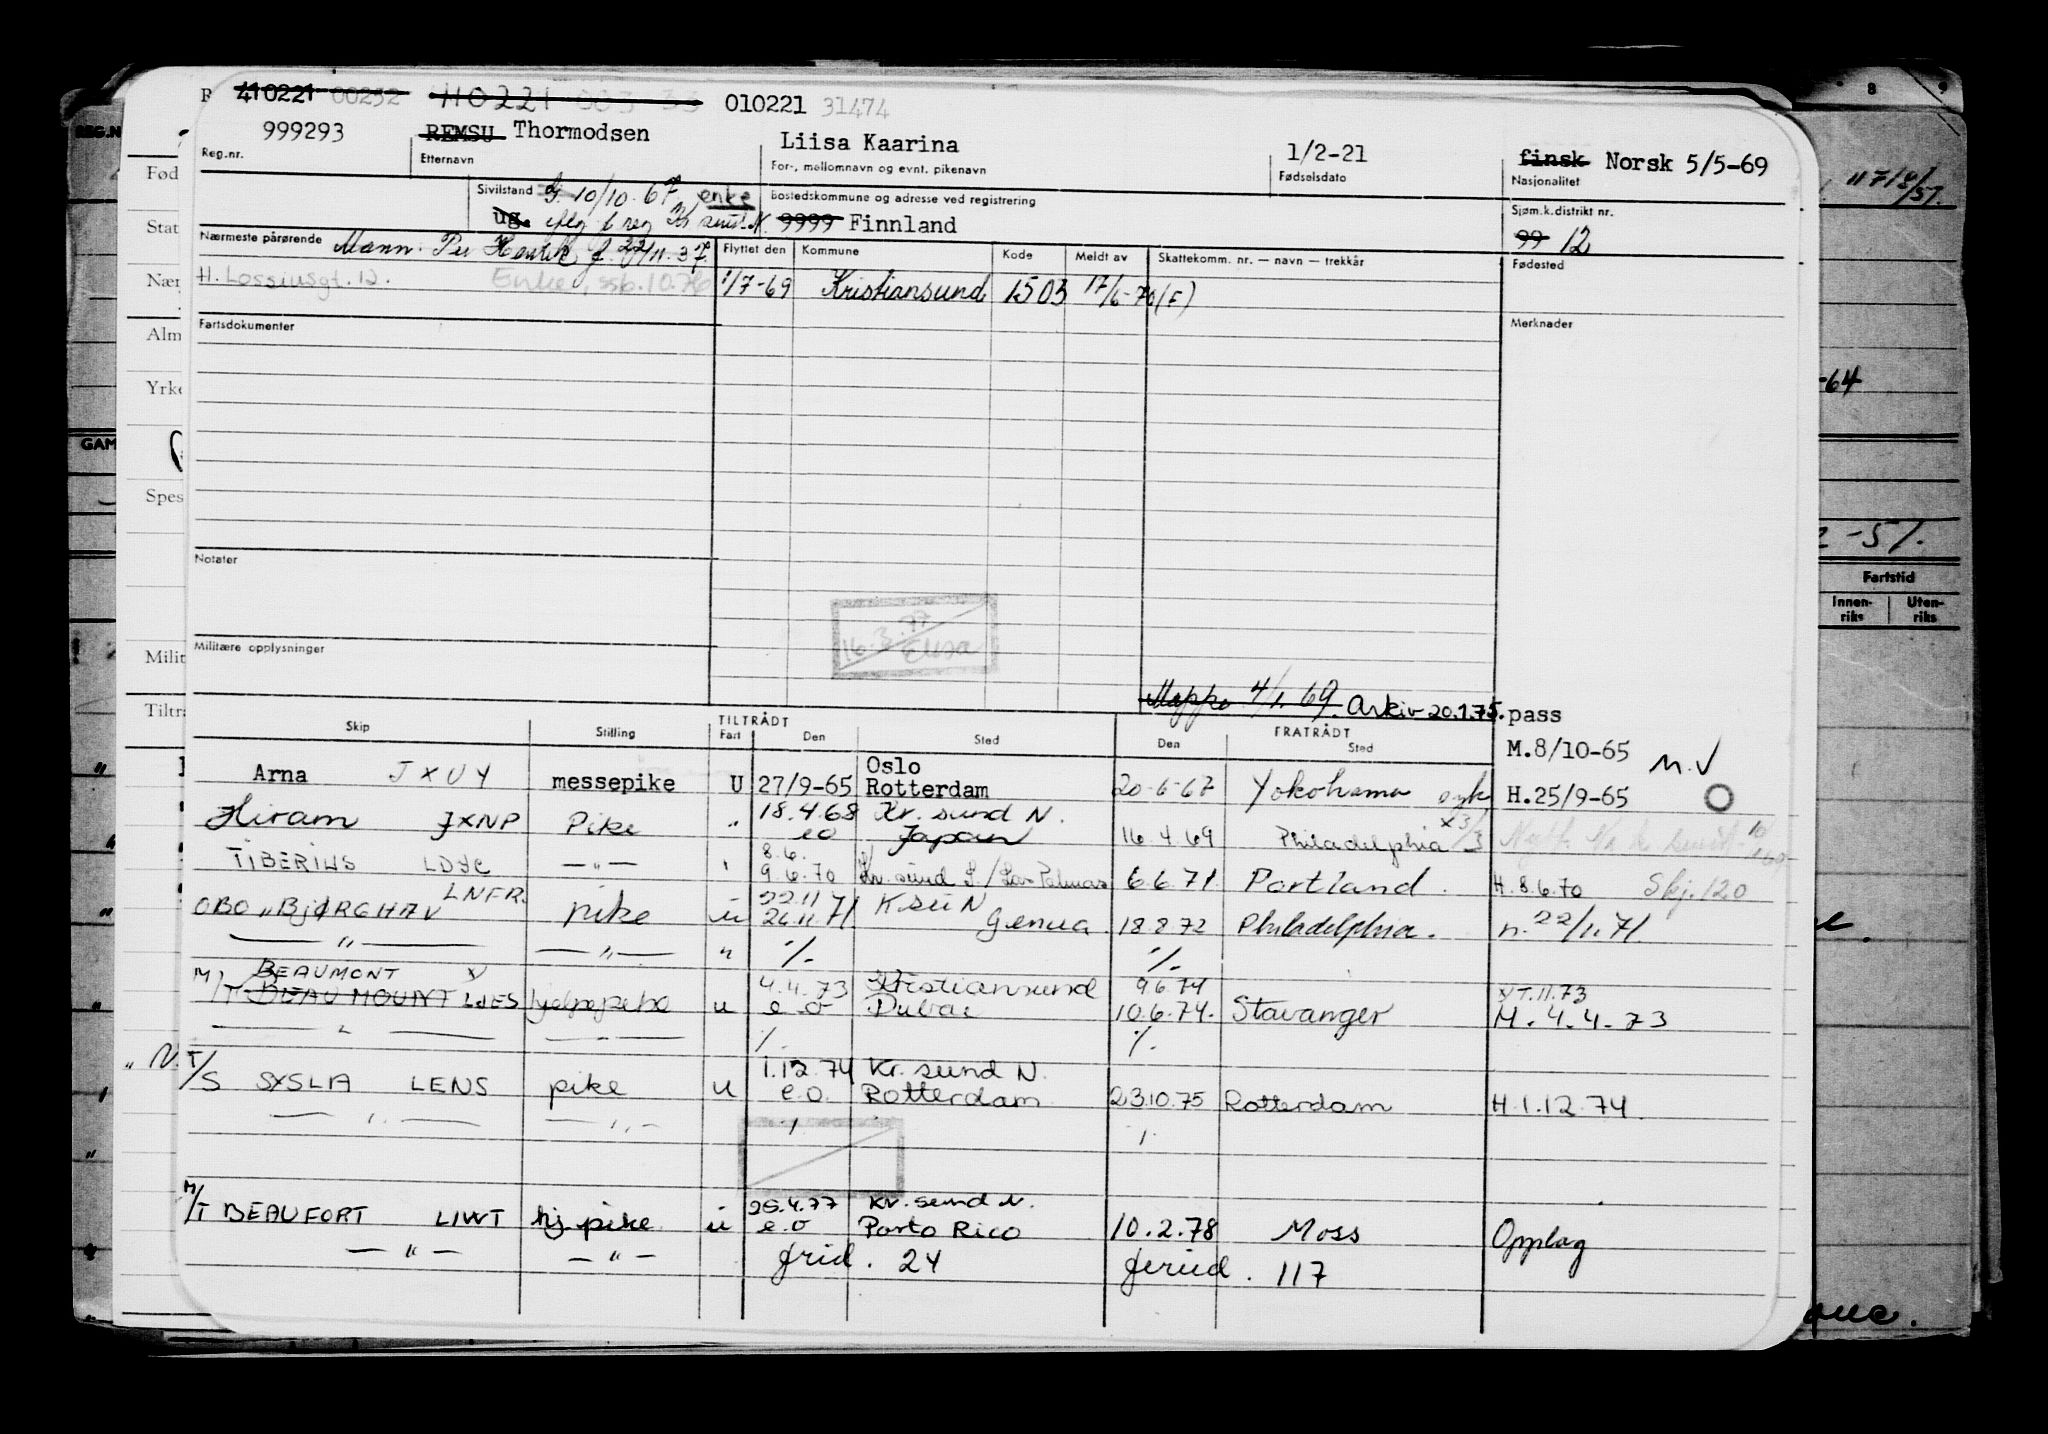 410221 00252 HO221 003 33 010221 31474
999293 REMSU Thormodsen Liisa Kaarina 1/2-21 finsk Norsk 5/5-69
Reg.nr. Etternavn For-, mellomnavn og evnt. pikenavn Fødselsdato Nasjonalitet
Sivilstand G. 10/10.67 enke Bostedskommune og adresse ved registrering Sjøm.k.distrikt nr.
ug. 9999 Finnland 99 12
Nærmeste pårørende Mann: Per Henrik f. 22/11.37. Flyttet den Kommune Kode Meldt av Skattekomm. nr. — navn — trekkår Fødested
H. Lossiusgt. 12. Enke, ssb. 10.76 1/7-69 Kristiansund 1503 17/6-70 (F)
Fartsdokumenter Merknader
Notater
16.3.77 Elisa
Militære opplysninger
Mappe 4/1.69. Arkiv 20.1.75. pass
Skip Stilling TILTRÅDT Fart Den Sted FRATRÅDT Den Sted M.8/10-65 M.V
Arna JXUY messepike U 27/9-65 Oslo Rotterdam 20-6-67 Yokohama syk H.25/9-65
Hiram JXNP Pike " 18.4.68 eo Kr. sund N. Japan 16.4.69 Philadelphia x3/3
TIBERIUS LDYC — " — " 8.6. 9.6.70 Kr. sund S / Las Palmas 6.6.71 Portland. H. 8.6.70 Skj. 120
OBO "BJØRGHAV LNFR. pike u 22.11 26.11.71 K.su N Genua 18.8.72 Philadelphia. n. 22/11.71
— " — — " — " %. %.
M/T BEAUMONT x) BEAU MOUNT LJES hjelpepike u 4.4.73 e.o Kristiansund Dubai 9.6.74 10.6.74. Stavanger x) T.11.73 M. 4.4.73
— " — — " — %. %.
T/S SYSLA LENS pike u 1.12.74 e.o. Kr. sund N. Rotterdam 23.10.75 Rotterdam H.1.12.74.
— " — — " —
M/T BEAUFORT LIWT hj. pike u 25.4.77 e.o Kr. sund N. Porto Rico 10.2.78 Moss Opplag
— " — — " — frid. 24 feried. 117
REG.N
Fød
Stat
Nær
Alm
Yrke
GAM
Spes
Milit
Tiltr
8 9
-64
2-51.
Fartstid
Innen-riks Uten-riks